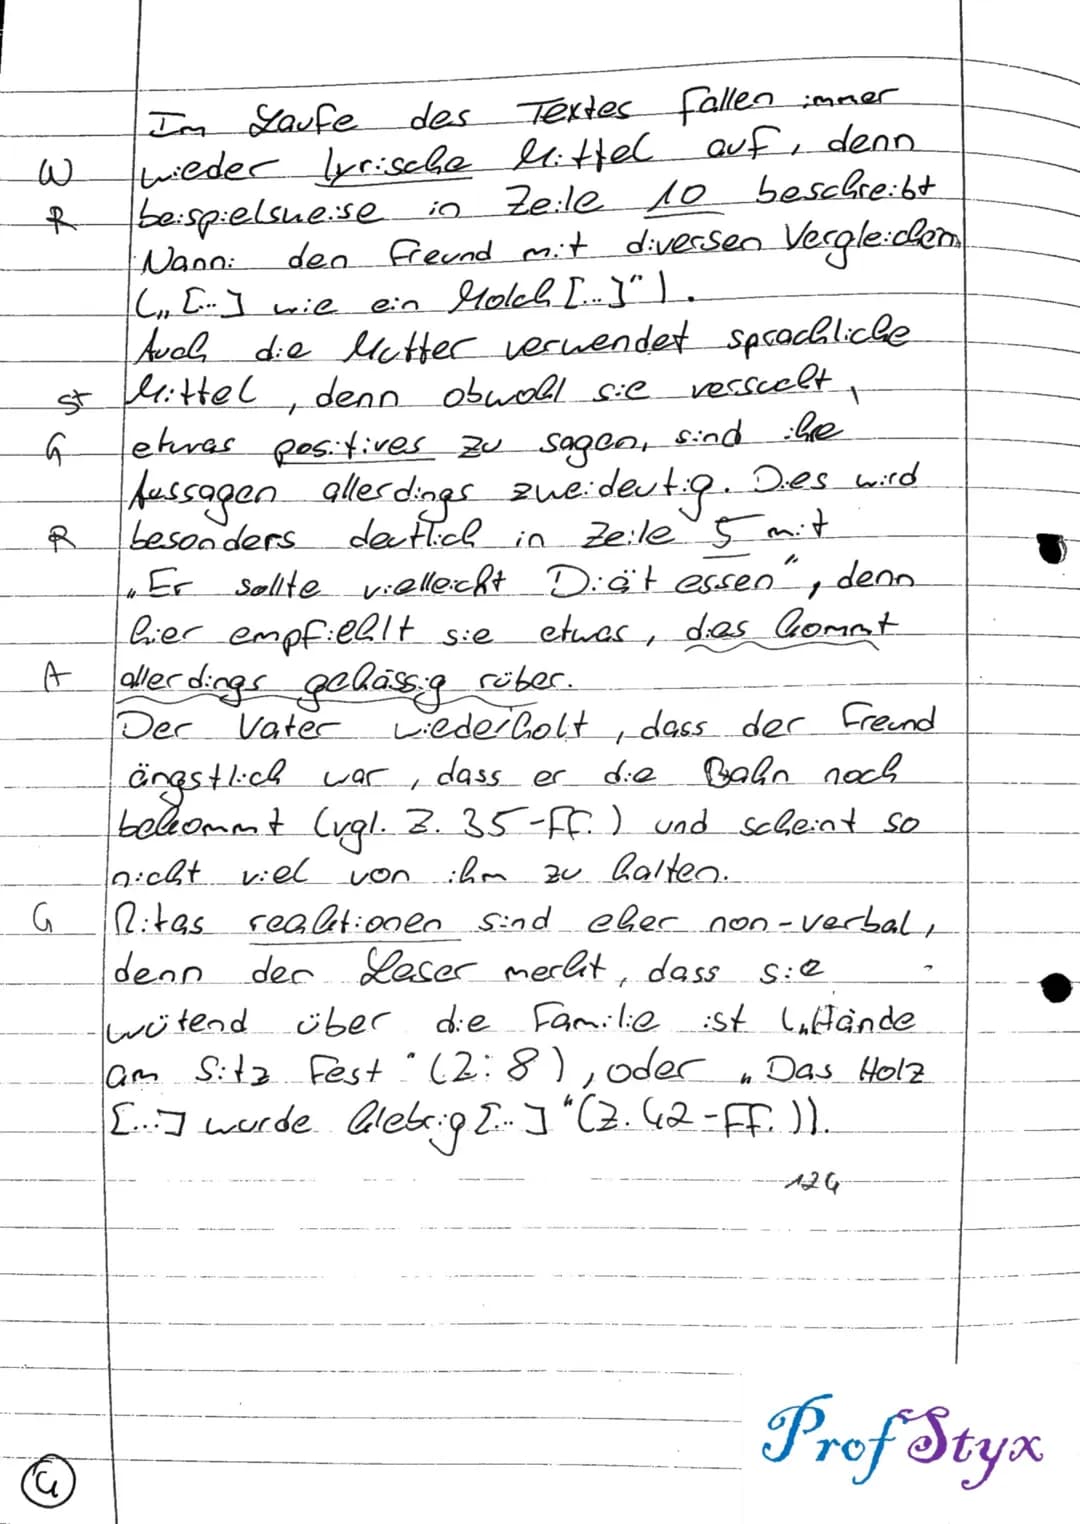 Im Laufe des Textes fallen immer
W wieder lyrische Mittel auf, denn
R beispielsweise in Zeile 10 beschreibt
Nanni den Freund mit diversen Vergleichen
(„[...] wie ein Molch [...]").
Auch die Mutter verwendet sprachliche
St Mittel, denn obwohl sie versucht,
G etwas positives zu sagen, sind ihre
Aussagen allerdings zweideutig. Dies wird
R besonders deutlich in Zeile 5 mit
„Er sollte vielleicht Diät essen", denn
hier empfiehlt sie etwas, das kommt
A allerdings gehässig rüber.
Der Vater wiederholt, dass der Freund
ängstlich war, dass er die Bahn noch
bekommt (vgl. Z. 35-ff.) und scheint so
nicht viel von ihm zu halten.
G Ritas reaktionen sind eher non-verbal,
denn der Leser merkt, dass sie
wütend über die Familie ist („Hände
am Sitz fest" (Z: 8), oder „Das Holz
[...] wurde klebrig [...]" (Z. 42-ff.)).
124
ProfStyx
4